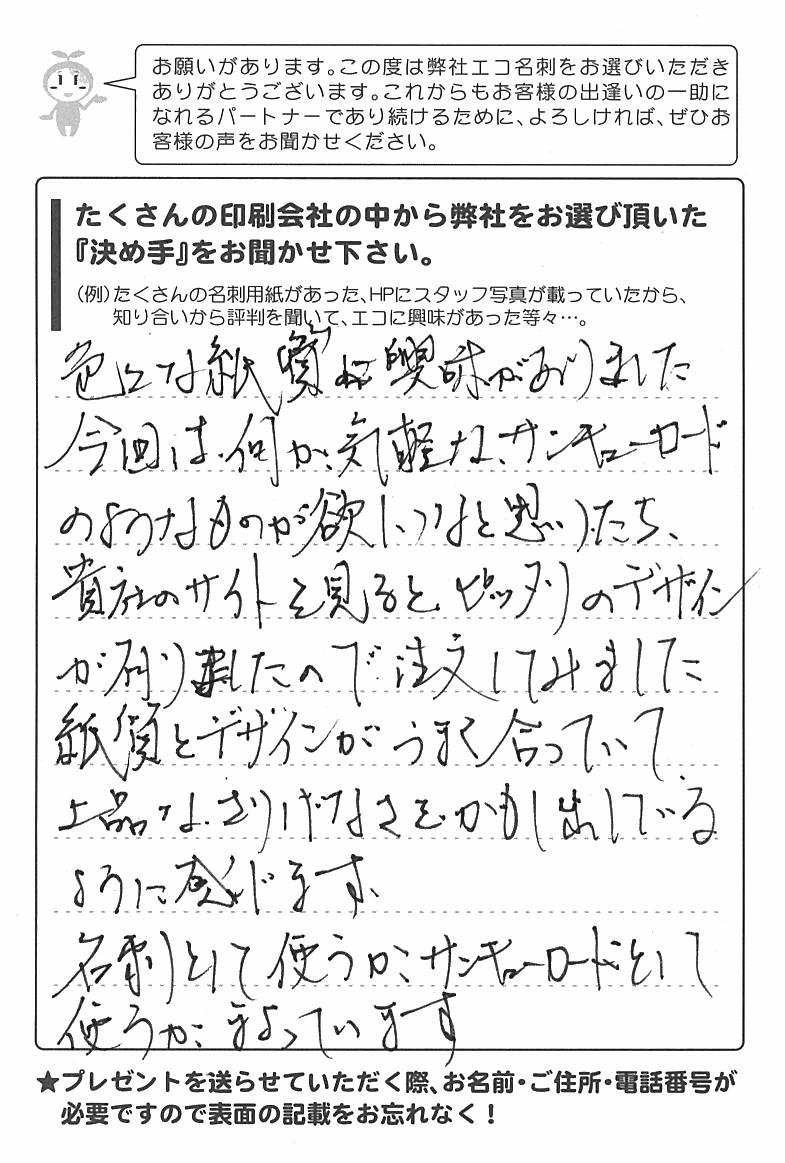 お願いがあります。この度は弊社エコ名刺をお選びいただき
ありがとうございます。これからもお客様の出逢いの一助に
なれるパートナーであり続けるために、よろしければ、ぜひお
客様の声をお聞かせください。
たくさんの印刷会社の中から弊社をお選び頂いた
『決め手』をお聞かせ下さい。
(例)たくさんの名刺用紙があった、HPにスタッフ写真が載っていたから、
知り合いから評判を聞いて、エコに興味があった等々…。
色々な紙質に興味がありました
今回は、何か、気軽な、サンキューカード
のようなものが欲しいなと思いたち、
貴社のサイトを見ると、ピッタリのデザイン
が有りましたので注文してみました
紙質とデザインがうまく合っていて、
上品な、さりげなさを、かもし出している
ように感じます、
名刺として使うか、サンキューカードとして
使うか、まよっています
★プレゼントを送らせていただく際、お名前・ご住所・電話番号が
必要ですので表面の記載をお忘れなく！